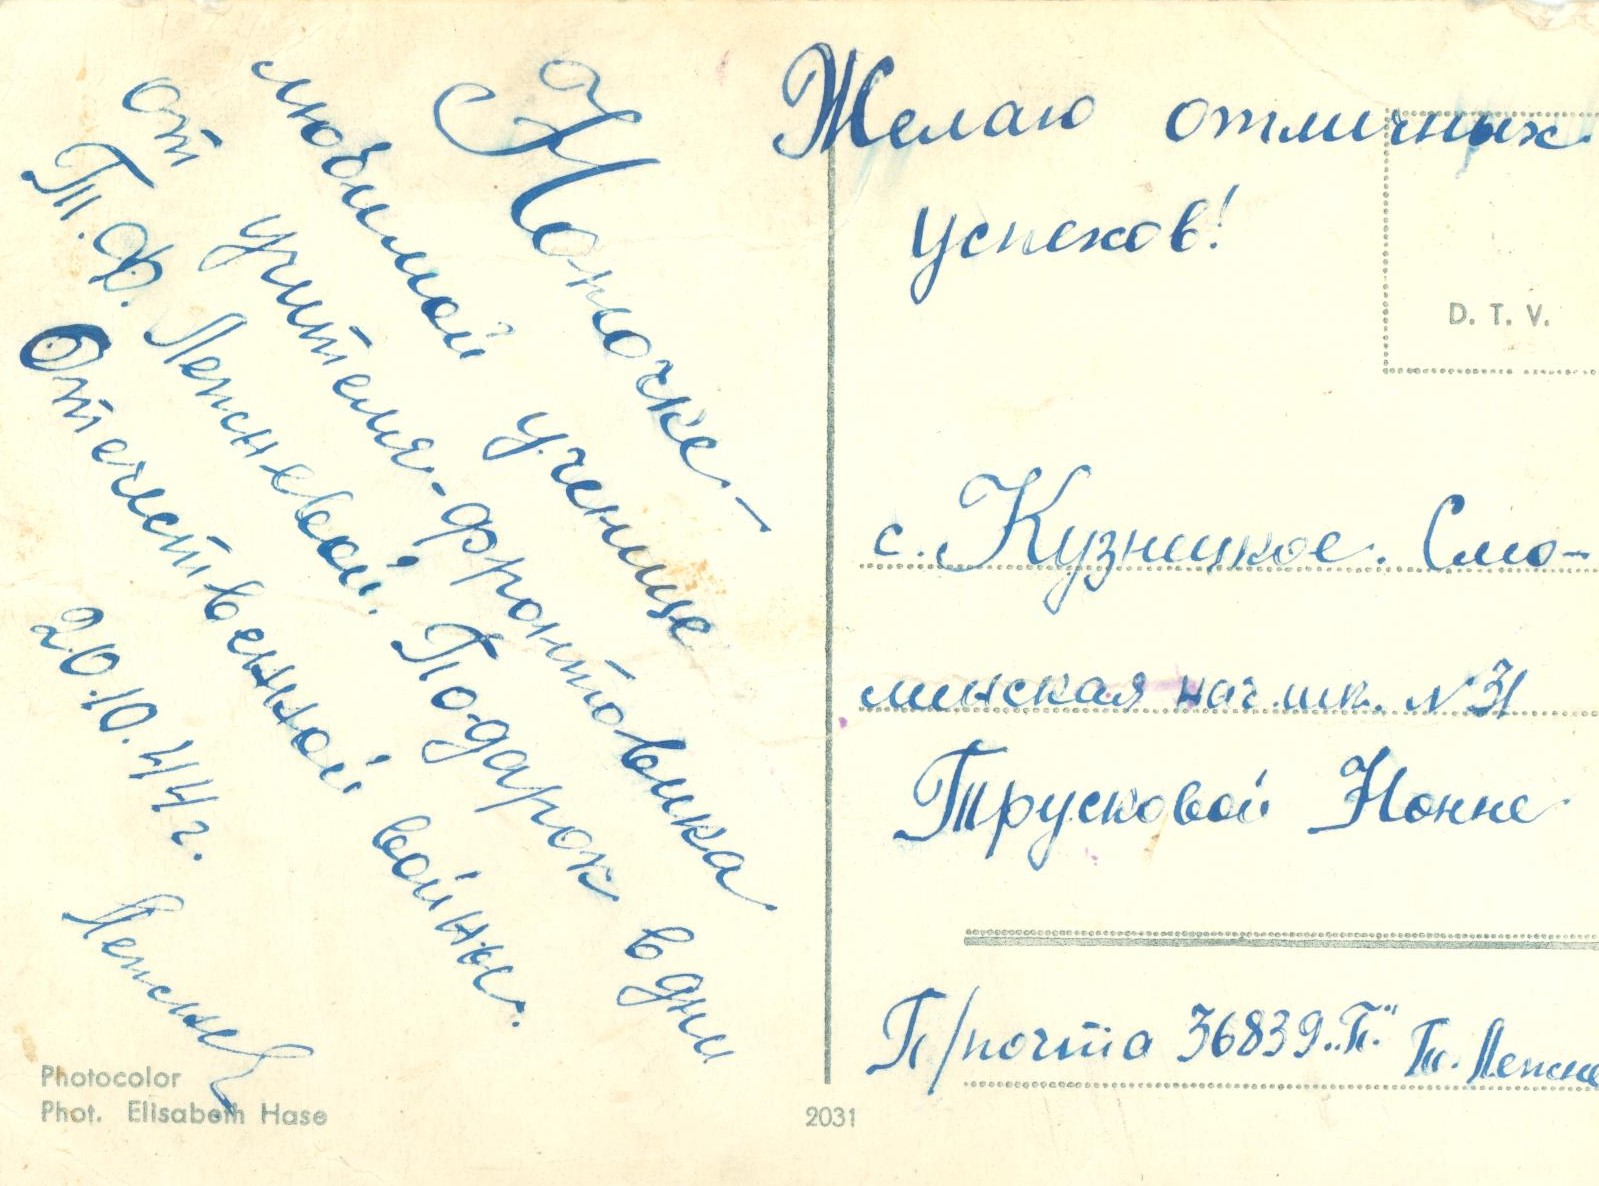 Ноночке –
любимой ученице
от учителя-фронтовика
Т.Ф. Лепсневой. Подарок в дни
Отечественной войны.
20.10.44 г.
Photocolor
Phot. Elisabeth Hase
2031
Желаю отличных
успехов!
D. T. V.
с. Кузнецкое. Смо-
линская нач. шк. № 31
Трусковой Нонне
П/почта 36839 „П."